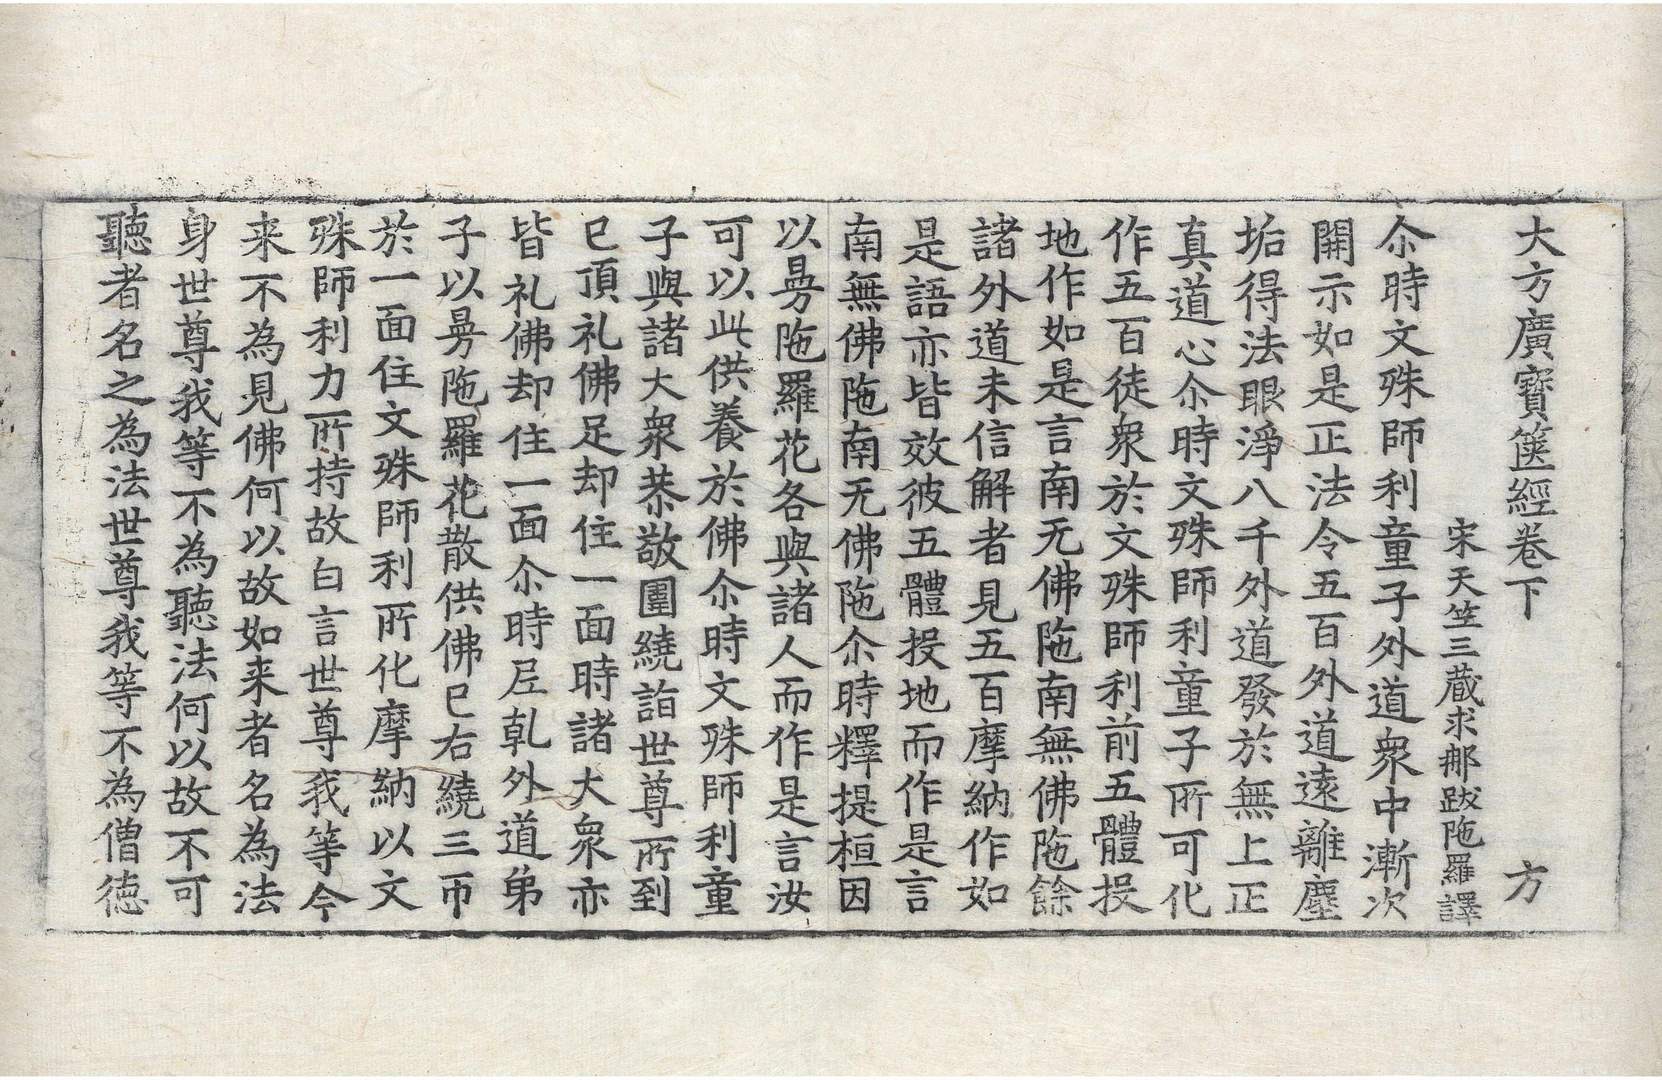 大方廣寶篋經卷下　方
宋天竺三藏求那跋陁羅譯
尒時文殊師利童子外道衆中漸次
開示如是正法令五百外道遠離塵
垢得法眼淨八千外道發於無上正
真道心尒時文殊師利童子所可化
作五百徒衆於文殊師利前五體投
地作如是言南无佛陁南無佛陁餘
諸外道未信解者見五百摩納作如
是語亦皆效彼五體投地而作是言
南無佛陁南无佛陁尒時釋提桓因
以曼陁羅花各與諸人而作是言汝
可以此供養於佛尒時文殊師利童
子與諸大衆恭敬圍繞詣世尊所到
已頂礼佛足却住一面時諸大衆亦
皆礼佛却住一面尒時尼乹外道弟
子以曼陁羅花散供佛已右繞三帀
於一面住文殊師利所化摩納以文
殊師利力所持故白言世尊我等今
来不為見佛何以故如来者名為法
身世尊我等不為聽法何以故不可
聽者名之為法世尊我等不為僧德